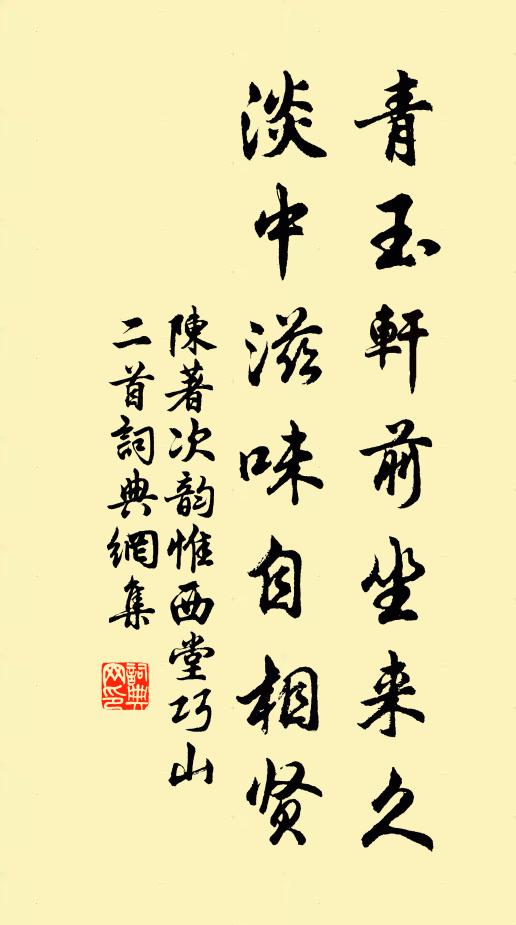 青玉軒前坐来久
淡中滋味自相贤
陳著次韵惟西堂巧山
二首詞典網集
詞典
网印